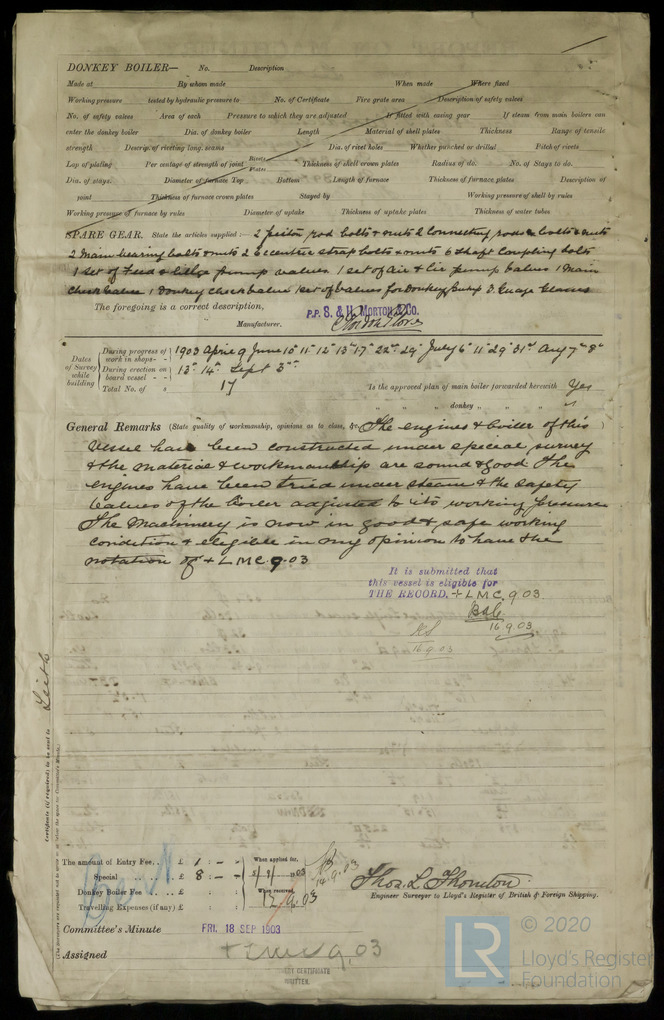 DONKEY BOILER— No. Description
Made at By whom made When made Where fixed
Working pressure tested by hydraulic pressure to No. of Certificate Fire grate area Description of safety valves
No. of safety valves Area of each Pressure to which they are adjusted If fitted with easing gear If steam from main boilers can
enter the donkey boiler Dia. of donkey boiler Length Material of shell plates Thickness Range of tensile
strength Descrip. of riveting long. seams Dia. of rivet holes Whether punched or drilled Pitch of rivets
Lap of plating Per centage of strength of joint Rivets Plates Thickness of shell crown plates Radius of do. No. of Stays to do.
Dia. of stays. Diameter of furnace Top Bottom Length of furnace Thickness of furnace plates Description of
joint Thickness of furnace crown plates Stayed by Working pressure of shell by rules
Working pressure of furnace by rules Diameter of uptake Thickness of uptake plates Thickness of water tubes
SPARE GEAR. State the articles supplied:— 2 piston rod bolts & nuts 2 Connecting rods bolts & nuts
2 Main bearing bolts & nuts 2 Eccentric strap bolts & nuts 6 Shaft Coupling bolts
1 set of Feed & bilge pump valves 1 set of air & Cir pump valves 1 Main
Check valve 1 Donkey check valve 1 set of valves for Donkey Pump 3 Guage Glasses
The foregoing is a correct description,
P.P. S. & H. MORTON & CO.
Manufacturer.
Dates of Survey while building
During progress of work in shops - - 1903 April 9 June 10 11 12 13 17 22 29 July 6 11 29 31st Aug 7th 8th
During erection on board vessel - - - 13th 14th Sept 3rd
Total No. of 17
Is the approved plan of main boiler forwarded herewith Yes
" " donkey " " "
General Remarks (State quality of workmanship, opinions as to class, &c. The engines & boiler of this
Vessel have been constructed under special survey
& the material & workmanship are sound & good The
engines have been tried under steam & the safety
valves of the boiler adjusted to its working pressure
The Machinery is now in good & safe working
condition & eligible in my opinion to have the
notation of + LMC 9.03
It is submitted that
this vessel is eligible for
THE RECORD. + LMC 9.03.
16.9.03
16.9.03
Certificate (if required) to be sent to Leith
The amount of Entry Fee.. £ 1 : - : -
Special .. .. £ 8 : - : -
Donkey Boiler Fee .. £ : :
Travelling Expenses (if any) £ : :
When applied for,
When received,
17.9.03
14.9.03
Thos. L. Thornton
Engineer Surveyor to Lloyd's Register of British & Foreign Shipping.
Committee's Minute FRI. 18 SEP 1903
Assigned + LMC 9.03
CERTIFICATE
WRITTEN.
© 2020
LR
Lloyd's Register
Foundation